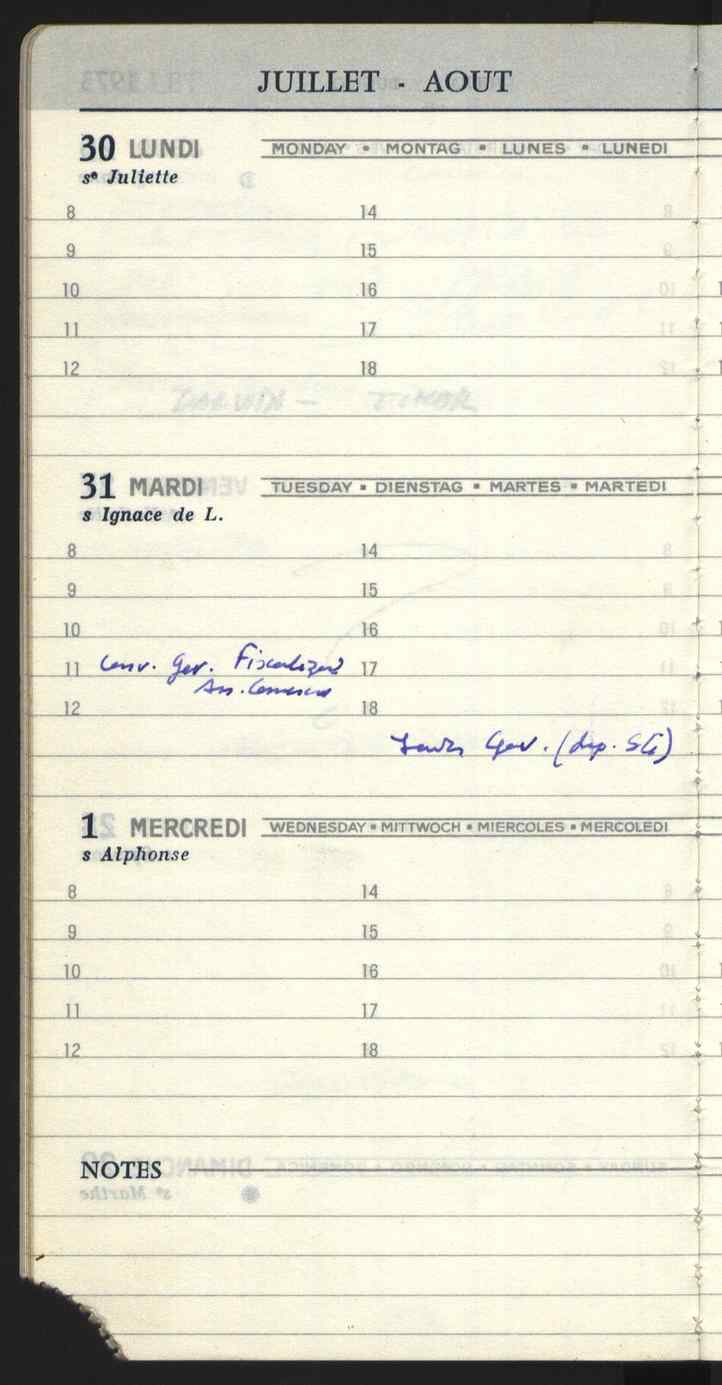 JUILLET - AOUT
30 LUNDI MONDAY • MONTAG • LUNES • LUNEDI
sᵉ Juliette
8 14
9 15
10 16
11 17
12 18
DARWIN - TIMOR
31 MARDI TUESDAY • DIENSTAG • MARTES • MARTEDI
s Ignace de L.
8 14
9 15
10 16
Conv. Gov. Fiscalizar
11 17
Ass. Comercial
12 18
Gov. (dep. SG)
1 MERCREDI WEDNESDAY • MITTWOCH • MIERCOLES • MERCOLEDI
s Alphonse
8 14
9 15
10 16
11 17
12 18
NOTES